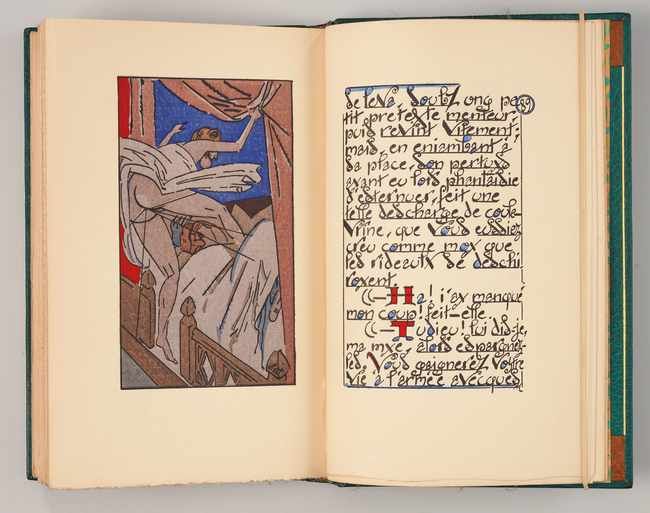 se leva, soubz ung pe
tit pretexte menteur,
puis revint vitement;
mais, en eniambant à
sa place, son pertuys
ayant eu lors phantaisie
d'esternuer, feit une
telle descharge de coule
vrine, que vous eussiez
creu comme moy que
les rideaulx se deschi
royent.
((— Ha! i'ay manqué
mon coup! feit-elle.
((— Tudieu! lui dis-je,
ma mye, alors espargnez
les. Vous gaignerez vostre
vie à l'armée avecques